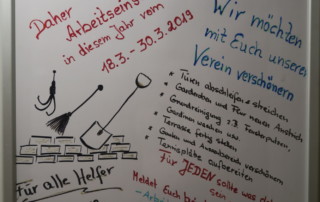 Daher
Arbeitseins
in diesem Jahr vom
18.3. - 30.3. 2019
Wir möchten
mit Euch unseren
Verein verschönern
* Türen abschleifen + streichen
* Garderoben und Flur neuen Anstrich
* Grundreinigung z.B. Fensterputzen,
Gardinen waschen usw.
* Terrasse fertig stellen
* Garten und Aussenbereich verschönern
* Tennisplätze aufbereiten
für JEDEN sollte was da
sein
Meldet Euch bei
- Arbeit
für alle Helfer